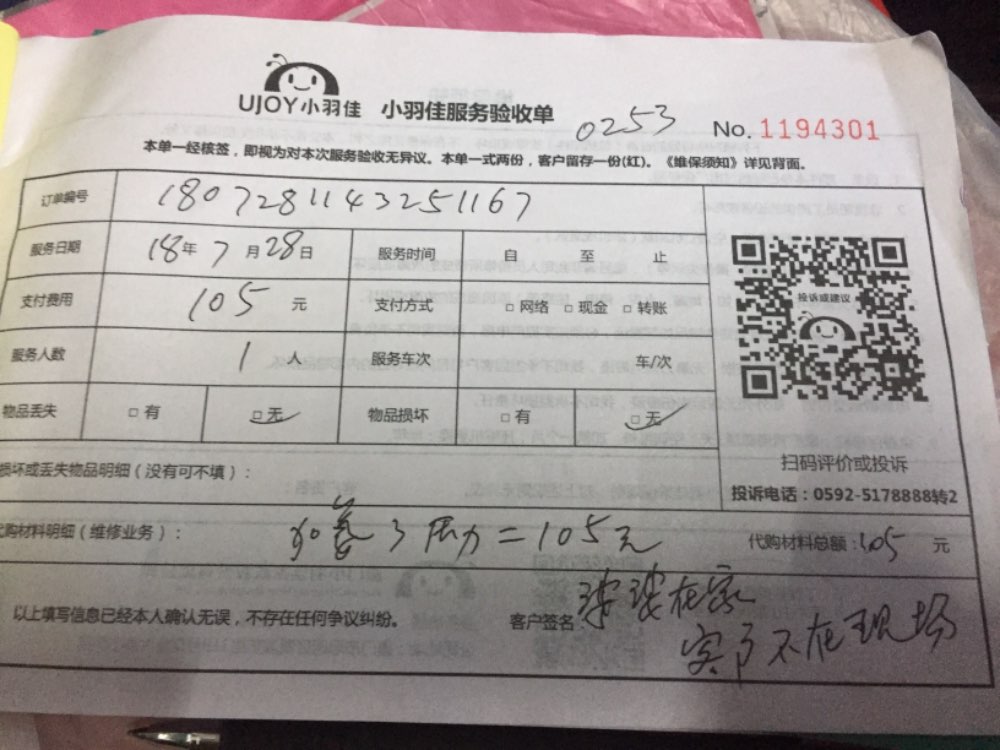 UJOY小羽佳 小羽佳服务验收单
0253 No. 1194301
本单一经核签，即视为对本次服务验收无异议。本单一式两份，客户留存一份(红)。《维保须知》详见背面。
订单编号 1807281143251167
服务日期 18年 7月28日 服务时间 自 至 止
支付费用 105 元 支付方式 □网络 □现金 □转账
投诉或建议
服务人数 1 人 服务车次 车/次
物品丢失 □有 □无 物品损坏 □有 □无
扫码评价或投诉
损坏或丢失物品明细（没有可不填）：
投诉电话：0592-5178888转2
代购材料明细（维修业务）： 加氟3压力=105元 代购材料总额：105 元
以上填写信息已经本人确认无误，不存在任何争议纠纷。 客户签名 婆婆在家
客户不在现场